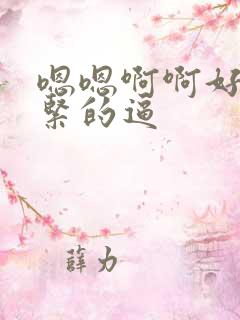 嗯嗯啊啊好
緊的逼
薛力